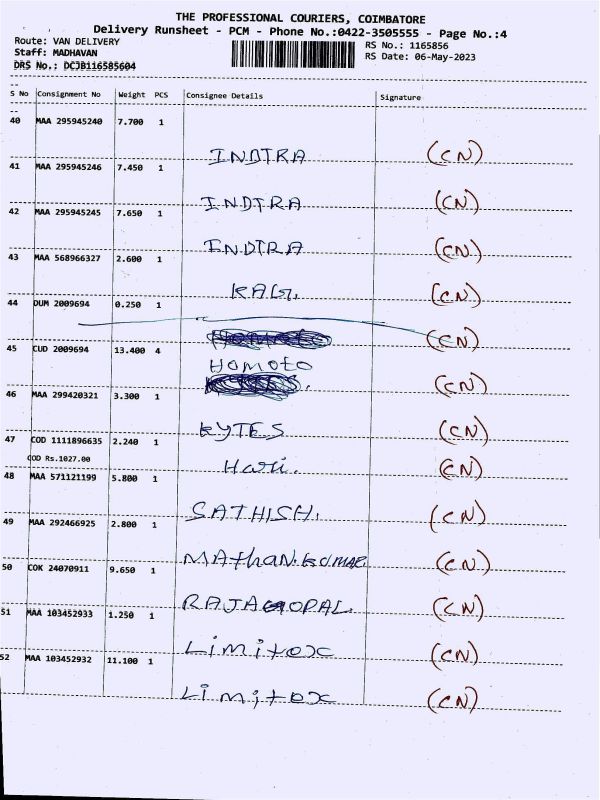 THE PROFESSIONAL COURIERS, COIMBATORE
Delivery Runsheet - PCM - Phone No.:0422-3505555 - Page No.:4
Route: VAN DELIVERY RS No.: 1165856
Staff: MADHAVAN RS Date: 06-May-2023
DRS No.: DCJB116585604
--
S No Consignment No Weight PCS Consignee Details Signature
--
40 MAA 295945240 7.700 1
INDTRA (CN)
41 MAA 295945246 7.450 1
INDTRA (CN)
42 MAA 295945245 7.650 1
INDTRA (CN)
43 MAA 568966327 2.600 1
KAG. (CN)
44 DUM 2009694 0.250 1
(CN)
45 CUD 2009694 13.400 4
Homoto
(CN)
46 MAA 299420321 3.300 1
KYTES (CN)
47 COD 1111896635 2.240 1
COD Rs.1027.00
Hari. (CN)
48 MAA 571121199 5.800 1
SATHISH. (CN)
49 MAA 292466925 2.800 1
MAthaN.KUMAR (CN)
50 COK 24070911 9.650 1
RAJAGOPAL (CN)
51 MAA 103452933 1.250 1
Limitox (CN)
52 MAA 103452932 11.100 1
Limitox (CN)